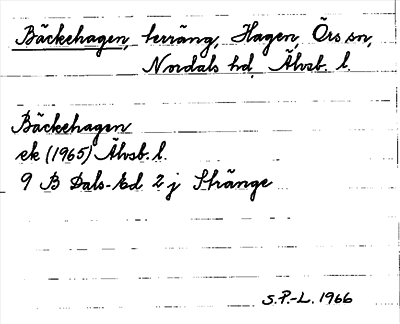 Bäckehagen, terräng, Hagen, Örs sn,
Nordals hd, Älvsb. l.
Bäckehagen
ek (1965) Älvsb. l.
9 B Dals-Ed 2 j Stränge
S.P.-L. 1966